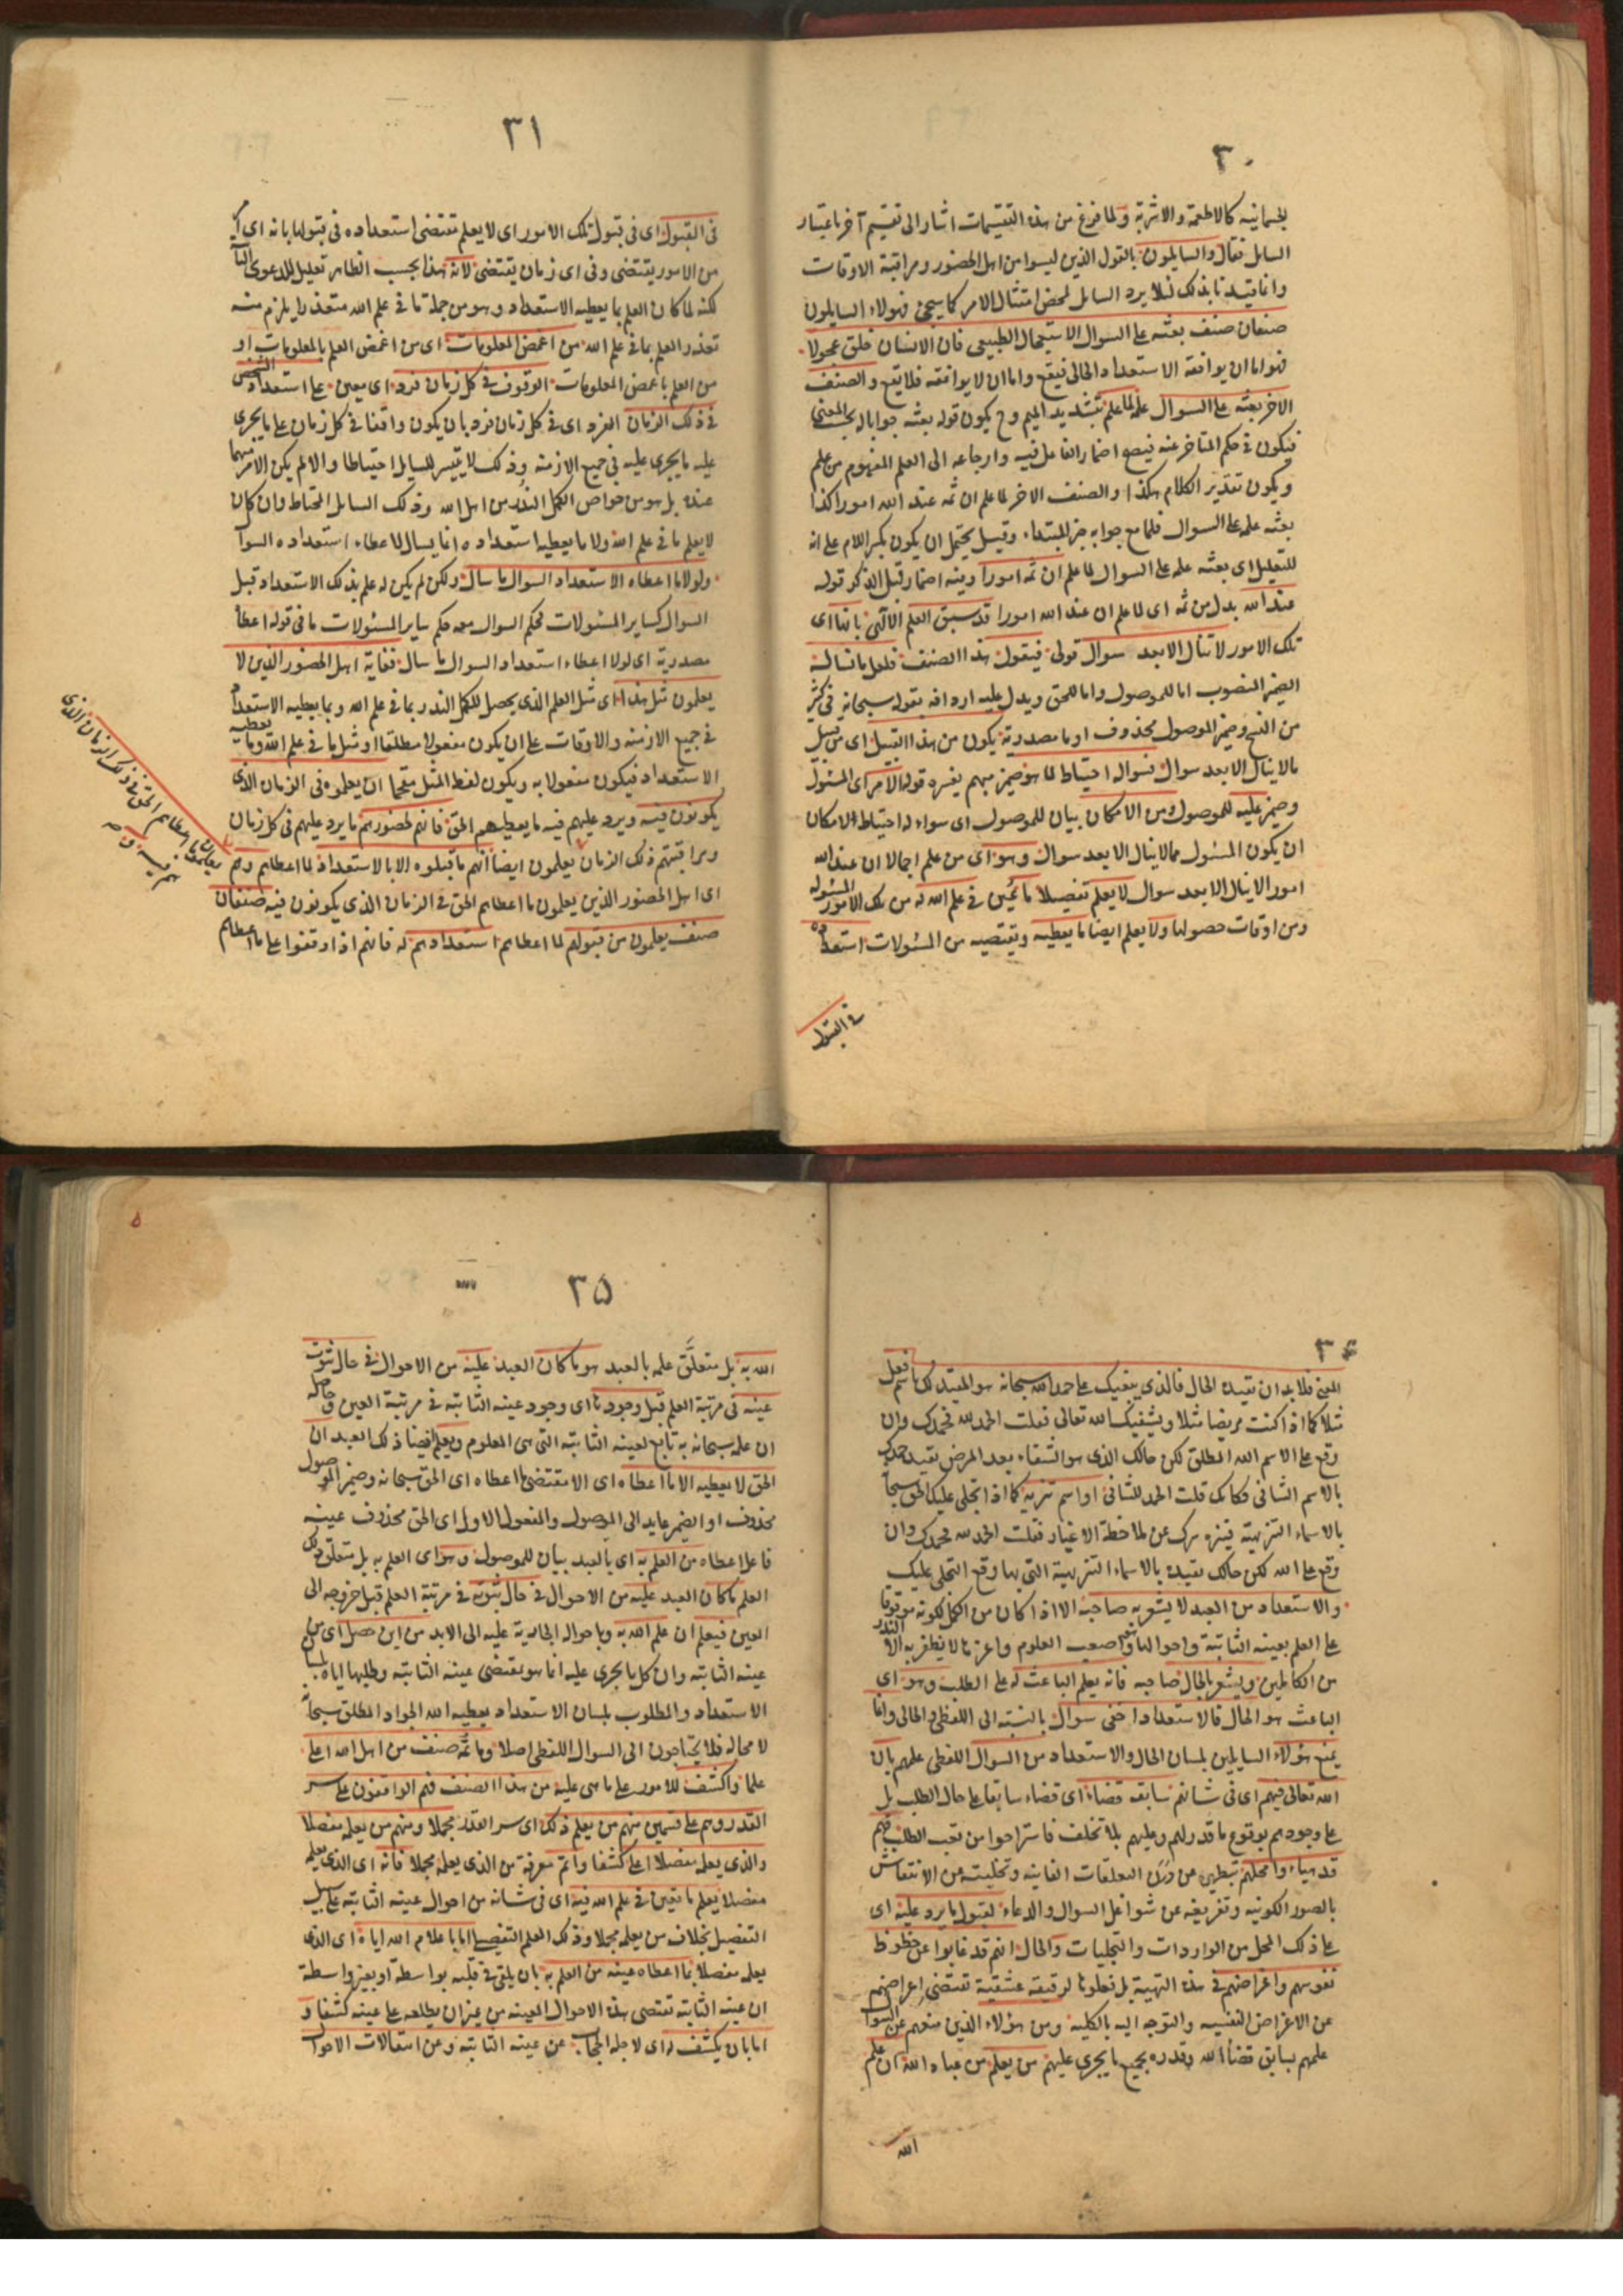 ٣٠
الجسمانية كالاطعمة والاشربة ولما فرغ من هذه التقسيمات اشار الى تقسيم آخر باعتبار
السائل فقال والسايلون بالقول الذين ليسوا من اهل الحضور ومراقبة الاوقات
وانما قيدنا بذلك لئلا يرد السائل لمحض امتثال الامر كما سيجئ فهولاء السايلون
صنفان صنف بعثه على السوال الاستعجال الطبيعى فان الانسان خلق عجولا
فهو اما ان يوافقه الاستعداد الحالى فيقع واما ان لا يوافقه فلا يقع والصنف
الاخر بعثه على السوال علمه لما علم بتشديد الميم وح يكون قوله بعثه جوابا له بحسب المعنى
فيكون فى حكم المتاخر عنه فيصح اضمار الفاعل فيه وارجاعه الى العلم المفهوم من علم
ويكون تقدير الكلام هكذا والصنف الاخر لما علم ان ثمه عند الله امورا كذا
بعثه علمه على السوال فلما مع جوابه خبر المبتداء وقيل يحتمل ان يكون بكسر اللام على انه
للتعليل اى بعثه علمه على السوال لما علم ان ثمه امورا وفيه اضمار قبل الذكر قوله
عند الله بدل من ثمه اى لما علم ان عند الله امورا قد سبق العلم الالهى بانها اى
تلك الامور لا تنال الا بعد سوال قولى فيقول هذا الصنف فلعل ما نساله
الضمير المنصوب اما للموصول واما للحق ويدل عليه اردافه بقوله سبحانه فى كثير
من النسخ وضمير الموصول محذوف او ما مصدرية يكون من هذا القبيل اى من قبيل
ما لا ينال الا بعد سوال فسواله احتياط لما هو ضمير مبهم يفسره قوله الامر اى المسئول
وضمير عليه للموصول ومن الامكان بيان للموصول اى سواله احتياط لامكان
ان يكون المسئول مما لا ينال الا بعد سوال وهو اى من علم اجمالا ان عند الله
امورا لا ينال الا بعد سوال لا يعلم تفصيلا ما تعين فى علم الله له من تلك الامور المسئوله
ومن اوقات حصولها ولا يعلم ايضا ما يعطيه ويقتضيه من المسئولات استعداده
فى القبول
٣١
فى القبول اى فى قبول تلك الامور اى لا يعلم مقتضى استعداده فى قبولها بانه اى
من الامور يقتضى وفى اى زمان يقتضى لانه هذا بحسب الظاهر تعليل للدعوى
لكنه لما كان العلم بما يعطيه الاستعداد وهو من جملة ما فى علم الله متعذرا يلزم منه
تعذر العلم بما فى علم الله من اغمض المعلومات اى من اغمض العلم بالمعلومات او
من العلم باغمض المعلومات الوقوف فى كل زمان فرد اى معين على استعداد الشخص
فى ذلك الزمان الفرد اى فى كل زمان فرد بان يكون واقفا فى كل زمان على ما يجرى
عليه ما يجرى عليه فى جميع الازمنه وذلك لا يتيسر للسايل احتياطا والا لم يكن الامر مبهما
عنده بل هو من خواص الكمل الندر من اهل الله وذلك السايل المحتاط وان كان
لا يعلم ما فى علم الله ولا ما يعطيه استعداده انما يسال لاعطاء استعداده السوآ
ولولا ما اعطاه الاستعداد السوال ما سال ولكن لم يكن له علم بذلك الاستعداد قبل
السوال كساير المسئولات فحكم السوال معه حكم ساير المسئولات ما فى قوله اعطا
مصدرية اى لولا اعطاء استعداد السوال ما سال فغاية اهل الحضور الذين لا
يعلمون مثل هذا اى مثل العلم الذى يحصل للكمل الندر بما فى علم الله وبما يعطيه الاستعداد
فى جميع الازمنه والاوقات على ان يكون مفعولا مطلقا او مثل ما فى علم الله وما يعطيه
الاستعداد فيكون مفعولا به ويكون لفظ المثل مقحما ان يعلموه فى الزمان الذى
يكونون فيه ويرد عليهم فيه ما يعطيهم الحق فانهم لحضورهم ما يرد عليهم فى كل زمان
ومراقبتهم ذلك الزمان يعلمون ايضا انهم ما قبلوه الا بالاستعداد لما اعطاهم وهم
اى اهل الحضور الذين يعلمون ما اعطاهم الحق فى الزمان الذى يكونون فيه صنفان
صنف يعلمون من قبولهم لما اعطاهم استعدادهم له فانهم اذا وقفوا على ما اعطاهم
يعلمون ما اعطاهم الحق فى ذلك الزمان الذى
هم فيه
٣٤
المعنى فلا بد ان يقيده الحال فالذى يبعثك على حمد الله سبحانه هو المقيد لك باسم فعل
مثلا كما اذا كنت مريضا مثلا ويشفيك الله تعالى فقلت الحمد لله فحمدك وان
وقع على الاسم الله المطلق لكن حالك الذى هو الشفاء بعد المرض يقيد حمدك
بالاسم الشافى فكانك قلت الحمد للشافى او اسم تنزيه كما اذا تجلى عليك الحق سبحا
بالاسماء التنزيهية فينزه سرك عن ملاحظة الاغيار فقلت الحمد لله فحمدك وان
وقع على الله لكن حالك يقيده بالاسماء التنزيهية التى بها وقع التجلى عليك
والاستعداد من العبد لا يشعر به صاحبه الا اذا كان من الكمل لكونه موقوفا
على العلم بعينه الثابتة واحوالها وهو اصعب العلوم واعزها لا يظفر به الا الندر
من الكاملين ويشعر بالحال صاحبه فانه يعلم الباعث له على الطلب وهو اى
الباعث هو الحال فالاستعداد اخفى سوال بالنسبة الى اللفظى والحالى وانما
يمنع هؤلاء السايلين بلسان الحال والاستعداد من السوال اللفظى علمهم بان
الله تعالى فيهم اى فى شانهم سابقه قضاء اى قضاء سابقا على حال الطلب بل
على وجودهم بوقوع ما قدر لهم وعليهم بلا تخلف فاستراحوا من تعب الطلب فهم
قد هياءوا محلهم بتطهيره عن درن التعلقات الفانيه وتخليته من الانتقاش
بالصور الكونيه وتفريغه عن شواغل السوال والدعاء لقبول ما يرد عليه اى
على ذلك المحل من الواردات والتجليات والحال انهم قد غابوا عن حظوظ
نفوسهم واغراضهم فى هذه التهيئة بل فعلوها لرقيقه عشقية تقتضى اعراضهم
عن الاغراض النفسيه والتوجه اليه بالكلية ومن هؤلاء الذين منعهم عن السوا
علمهم بسابق قضاء الله وقدره بجميع ما يجرى عليهم من يعلم من عباد الله ان علم
الله
٣٥
الله به بل متعلق علمه بالعبد هو ما كان العبد عليه من الاحوال فى حال ثبوت
عينه فى مرتبة العلم قبل وجودها اى وجود عينه الثابتة فى مرتبة العين وحاصله
ان علمه سبحانه به تابع لعينه الثابتة التى هى المعلوم ويعلم ايضا ذلك العبد ان
الحق لا يعطيه الا ما اعطاه اى الا مقتضى ما اعطاه اى الحق سبحانه وضمير الموصول
محذوف او الضمير عايد الى الموصول والمفعول الاول اى الحق محذوف عينه
فاعل اعطاه من العلم به اى بالعبد بيان للموصول وهو اى العلم به بل متعلق ذلك
العلم ما كان العبد عليه من الاحوال فى حال ثبوته فى مرتبة العلم قبل خروجه الى
العين فيعلم ان علم الله به وباحواله الجارية عليه الى الابد من اين حصل اى من
عينه الثابتة وان كل ما يجرى عليه انما هو بمقتضى عينه الثابتة وطلبها اياه بلسا
الاستعداد والمطلوب بلسان الاستعداد يعطيه الله الجواد المطلق سبحانه
لا محالة فلا يحتاجون الى السوال اللفظى اصلا وما ثمه صنف من اهل الله اعلى
علما واكشف للامور على ما هى عليه من هذا الصنف فهم الواقفون على سر
القدر وهم على قسمين منهم من يعلم ذلك اى سر القدر مجملا ومنهم من يعلمه مفصلا
والذى يعلمه مفصلا اعلى كشفا واتم معرفة من الذى يعلمه مجملا فانه اى الذى يعلمه
مفصلا يعلم ما تعين فى علم الله فيه اى فى شانه من احوال عينه الثابتة على سبيل
التفصيل بخلاف من يعلمه مجملا وذلك العلم التفصيلى اما باعلام الله اياه اى الذى
يعلمه مفصلا بما اعطاه عينه من العلم به بان يلقى فى قلبه بواسطة او بغير واسطة
ان عينه الثابتة تقتضى هذه الاحوال المعينه من غير ان يطلعه على عينه كشفا و
اما بان يكشف له اى لاجله الحجاب عن عينه الثابتة وعن انتقالات الاحوال